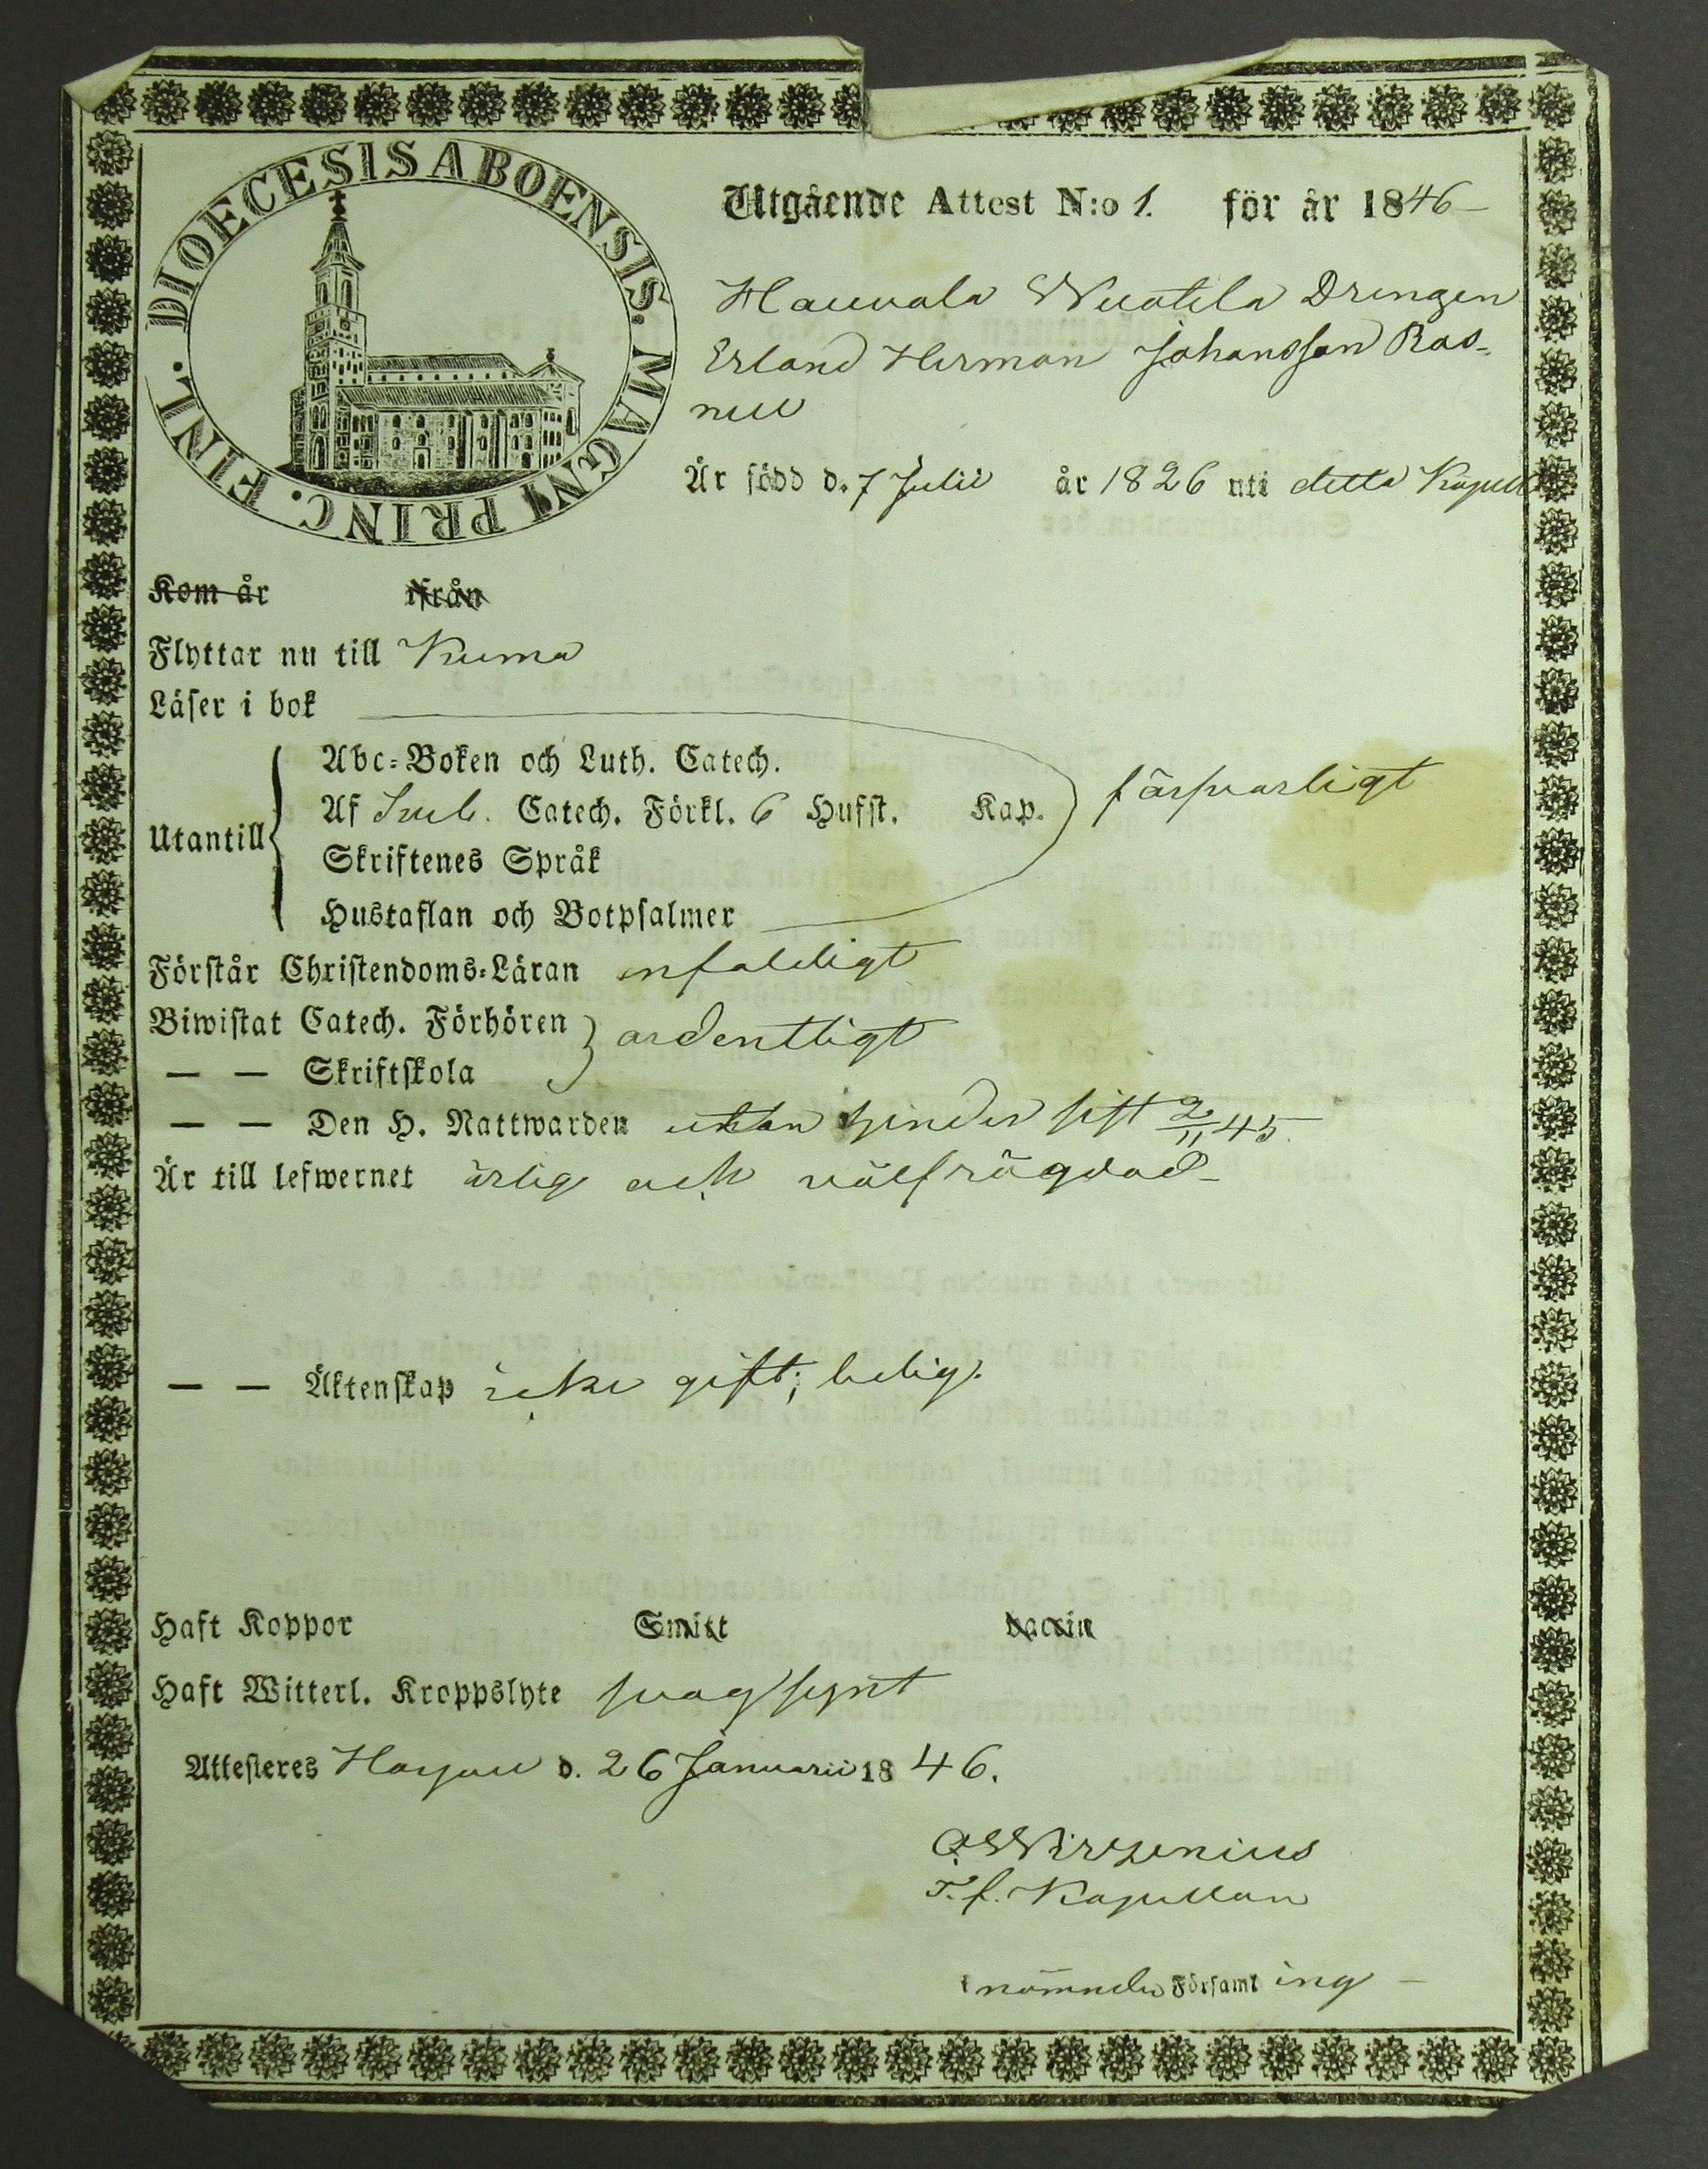 DIOECESIS ABOENSIS. MAGNI PRINC. FINL.
Utgående Attest N:o 1. för år 1846
Drengen
Erland Herman Johansson Ras-
mus
Är född d. 7 Julii år 1826 uti detta Kapell
Kom år ifrån
Flyttar nu till Kumo
Läser i bok
Abc-Boken och Luth. Catech.
Af Sveb. Catech. Förkl. 6 Hufst. Kap. försvarligt
Utantill
Skriftenes Språk
Hustaflan och Botpsalmer
Förstår Christendoms-Läran enfaldigt
Biwistat Catech. Förhören ordentligt
— — Skriftskola
— — Den H. Nattwarden utan hinder sist 2/11 45.
Är till lefwernet ärlig och välfrägdad
— — Äktenskap icke gift; ledig.
Haft Koppor Smitt vaccin
Haft Witterl. Kroppslyte svagsynt
Attesteres d. 26 Januarii 1846.
Wirzenius
T.f. Kapellan
i nämnde Församl ing